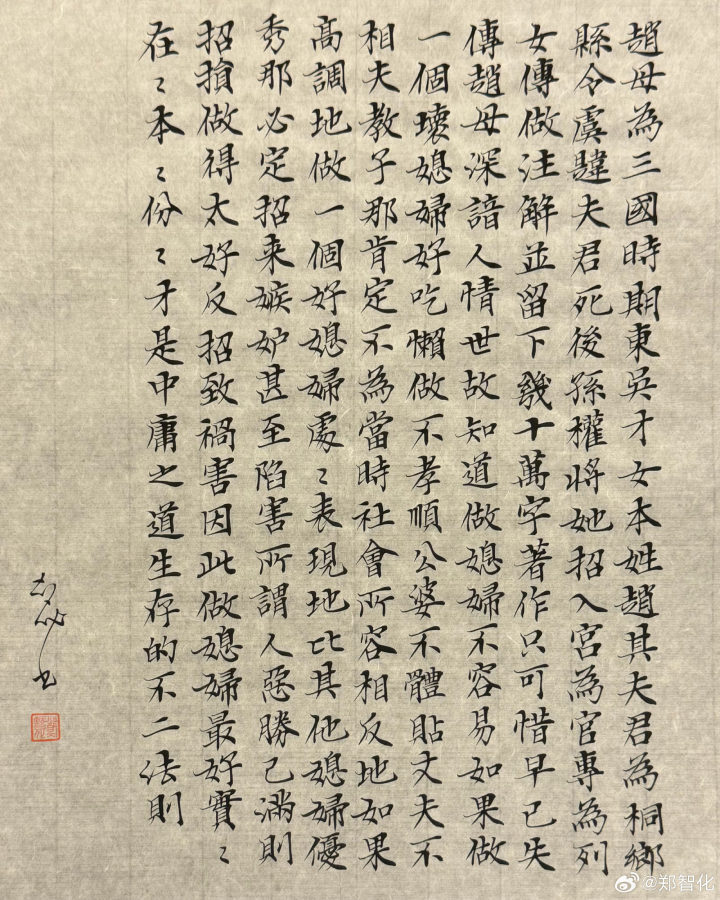 趙母為三國時期東吳才女本姓趙其夫君為桐鄉
縣令虞韙夫君死後孫權將她招入宮為官專為列
女傳做注解並留下幾十萬字著作只可惜早已失
傳趙母深諳人情世故知道做媳婦不容易如果做
一個壞媳婦好吃懶做不孝順公婆不體貼丈夫不
相夫教子那肯定不為當時社會所容相反地如果
高調地做一個好媳婦處〻表現地比其他媳婦優
秀那必定招来嫉妒甚至陷害所謂人惡勝己滿則
招損做得太好反招致禍害因此做媳婦最好實〻
在〻本〻份〻才是中庸之道生存的不二法則
@郑智化